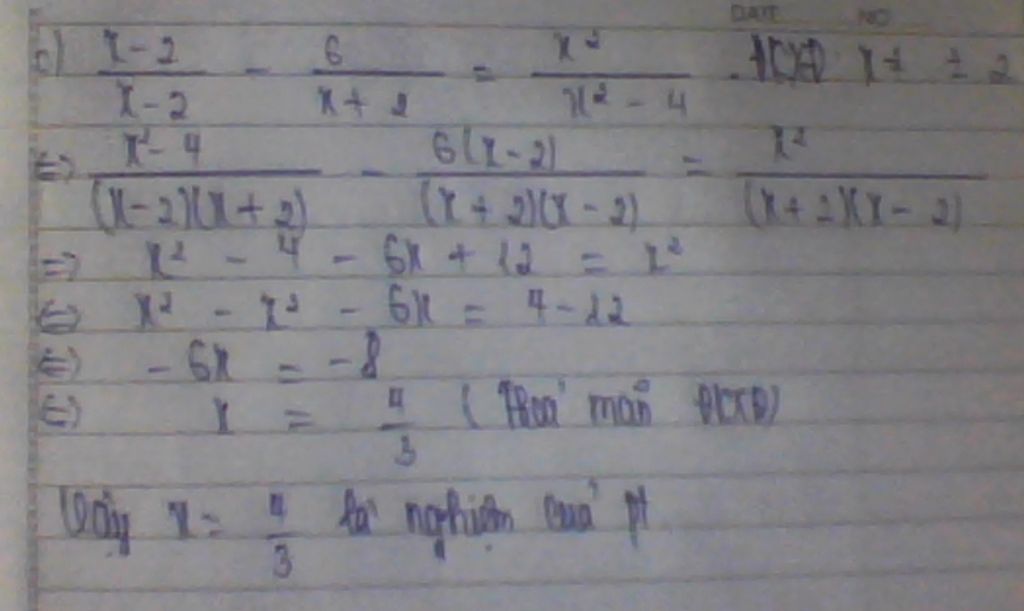 DATE NO
c) \frac{x-2}{x-2} - \frac{6}{x+2} = \frac{x²}{x²-4} . ĐKXĐ x ≠ ± 2
⇔) \frac{x²-4}{(x-2)(x+2)} - \frac{6(x-2)}{(x+2)(x-2)} = \frac{x²}{(x+2)(x-2)}
⇒ x² - 4 - 6x + 12 = x²
⇔ x² - x² - 6x = 4 - 12
⇔ - 6x = -8
⇔ x = \frac{4}{3} (Thoả mãn ĐKXĐ)
Vậy x = \frac{4}{3} là nghiệm của pt